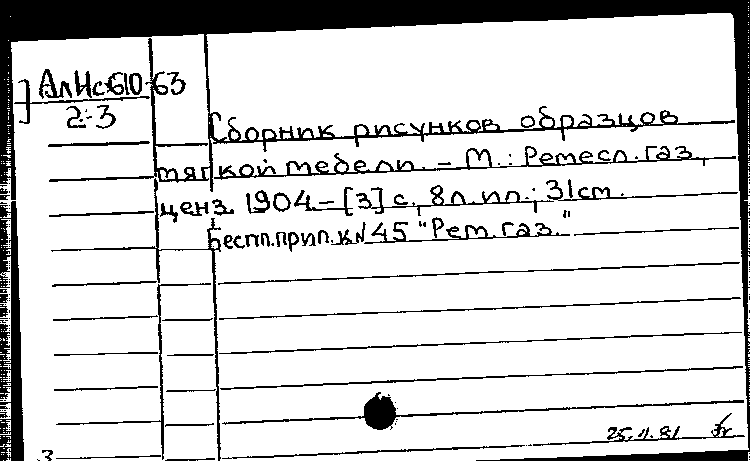 АлНс610-63
2-3
Сборник рисунков образцов
мягкой мебели. - М.: Ремесл. газ.,
ценз. 1904. - [3] с., 8 л. ил.; 31 см.
Беспл. прил. к № 45 "Рем. газ."
25.11.81
3